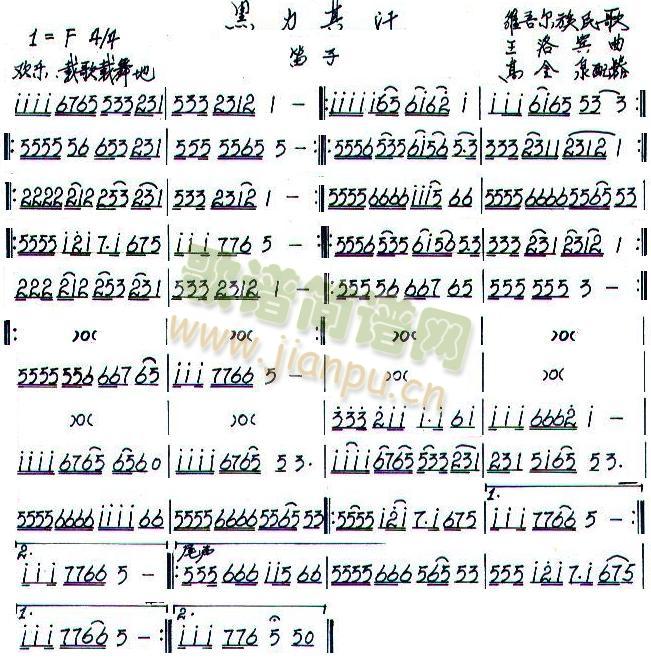 黑力其汗
1=F 4/4
笛子
维吾尔族民歌
王洛宾曲
高金泉配器
欢乐、载歌载舞地
i i i i 6765 533 231 | 533 2312 1 – |: i i i i i165 6162 1 | i i i 6165 53 3 :|
|: 5555 56 653 231 | 555 5565 5 – :|: 5556 535 6156 5·3 | 333 2311 2312 1
|: 2222 212 253 231 | 533 2312 1 – :| 5555 6666 i i i 5 66 | 5555 6666 5565 53 :|
|: 5555 i2i 7·i 675 | i i i 776 5 – :|: 5556 535 6156 53 | 333 231 2312 1 :|
222 212 253 231 | 533 2312 1 – |: 555 56 667 65 | 555 555 3 – :|
5555 556 667 65 | i i i 7766 5 –
333 2i i i·i 6i | i i i 6662 i –
i i i i 6765 6560 | i i i i 6765 53· | i i i i 6765 533 231 | 231 5165 53·
5555 6666 i i i i 66 | 5555 6666 5565 53 |: 5555 i2i 7·i 675 | 1. i i i 7766 5 – :|
2. i i i 7766 5 – |: 尾声 535 666 i i 5 66 | 5555 666 565 53 | 555 i2i 7·i 675
1. i i i 7766 5 – :| 2. i i i 776 5 50 ‖
歌谱简谱网
www.jianpu.cn